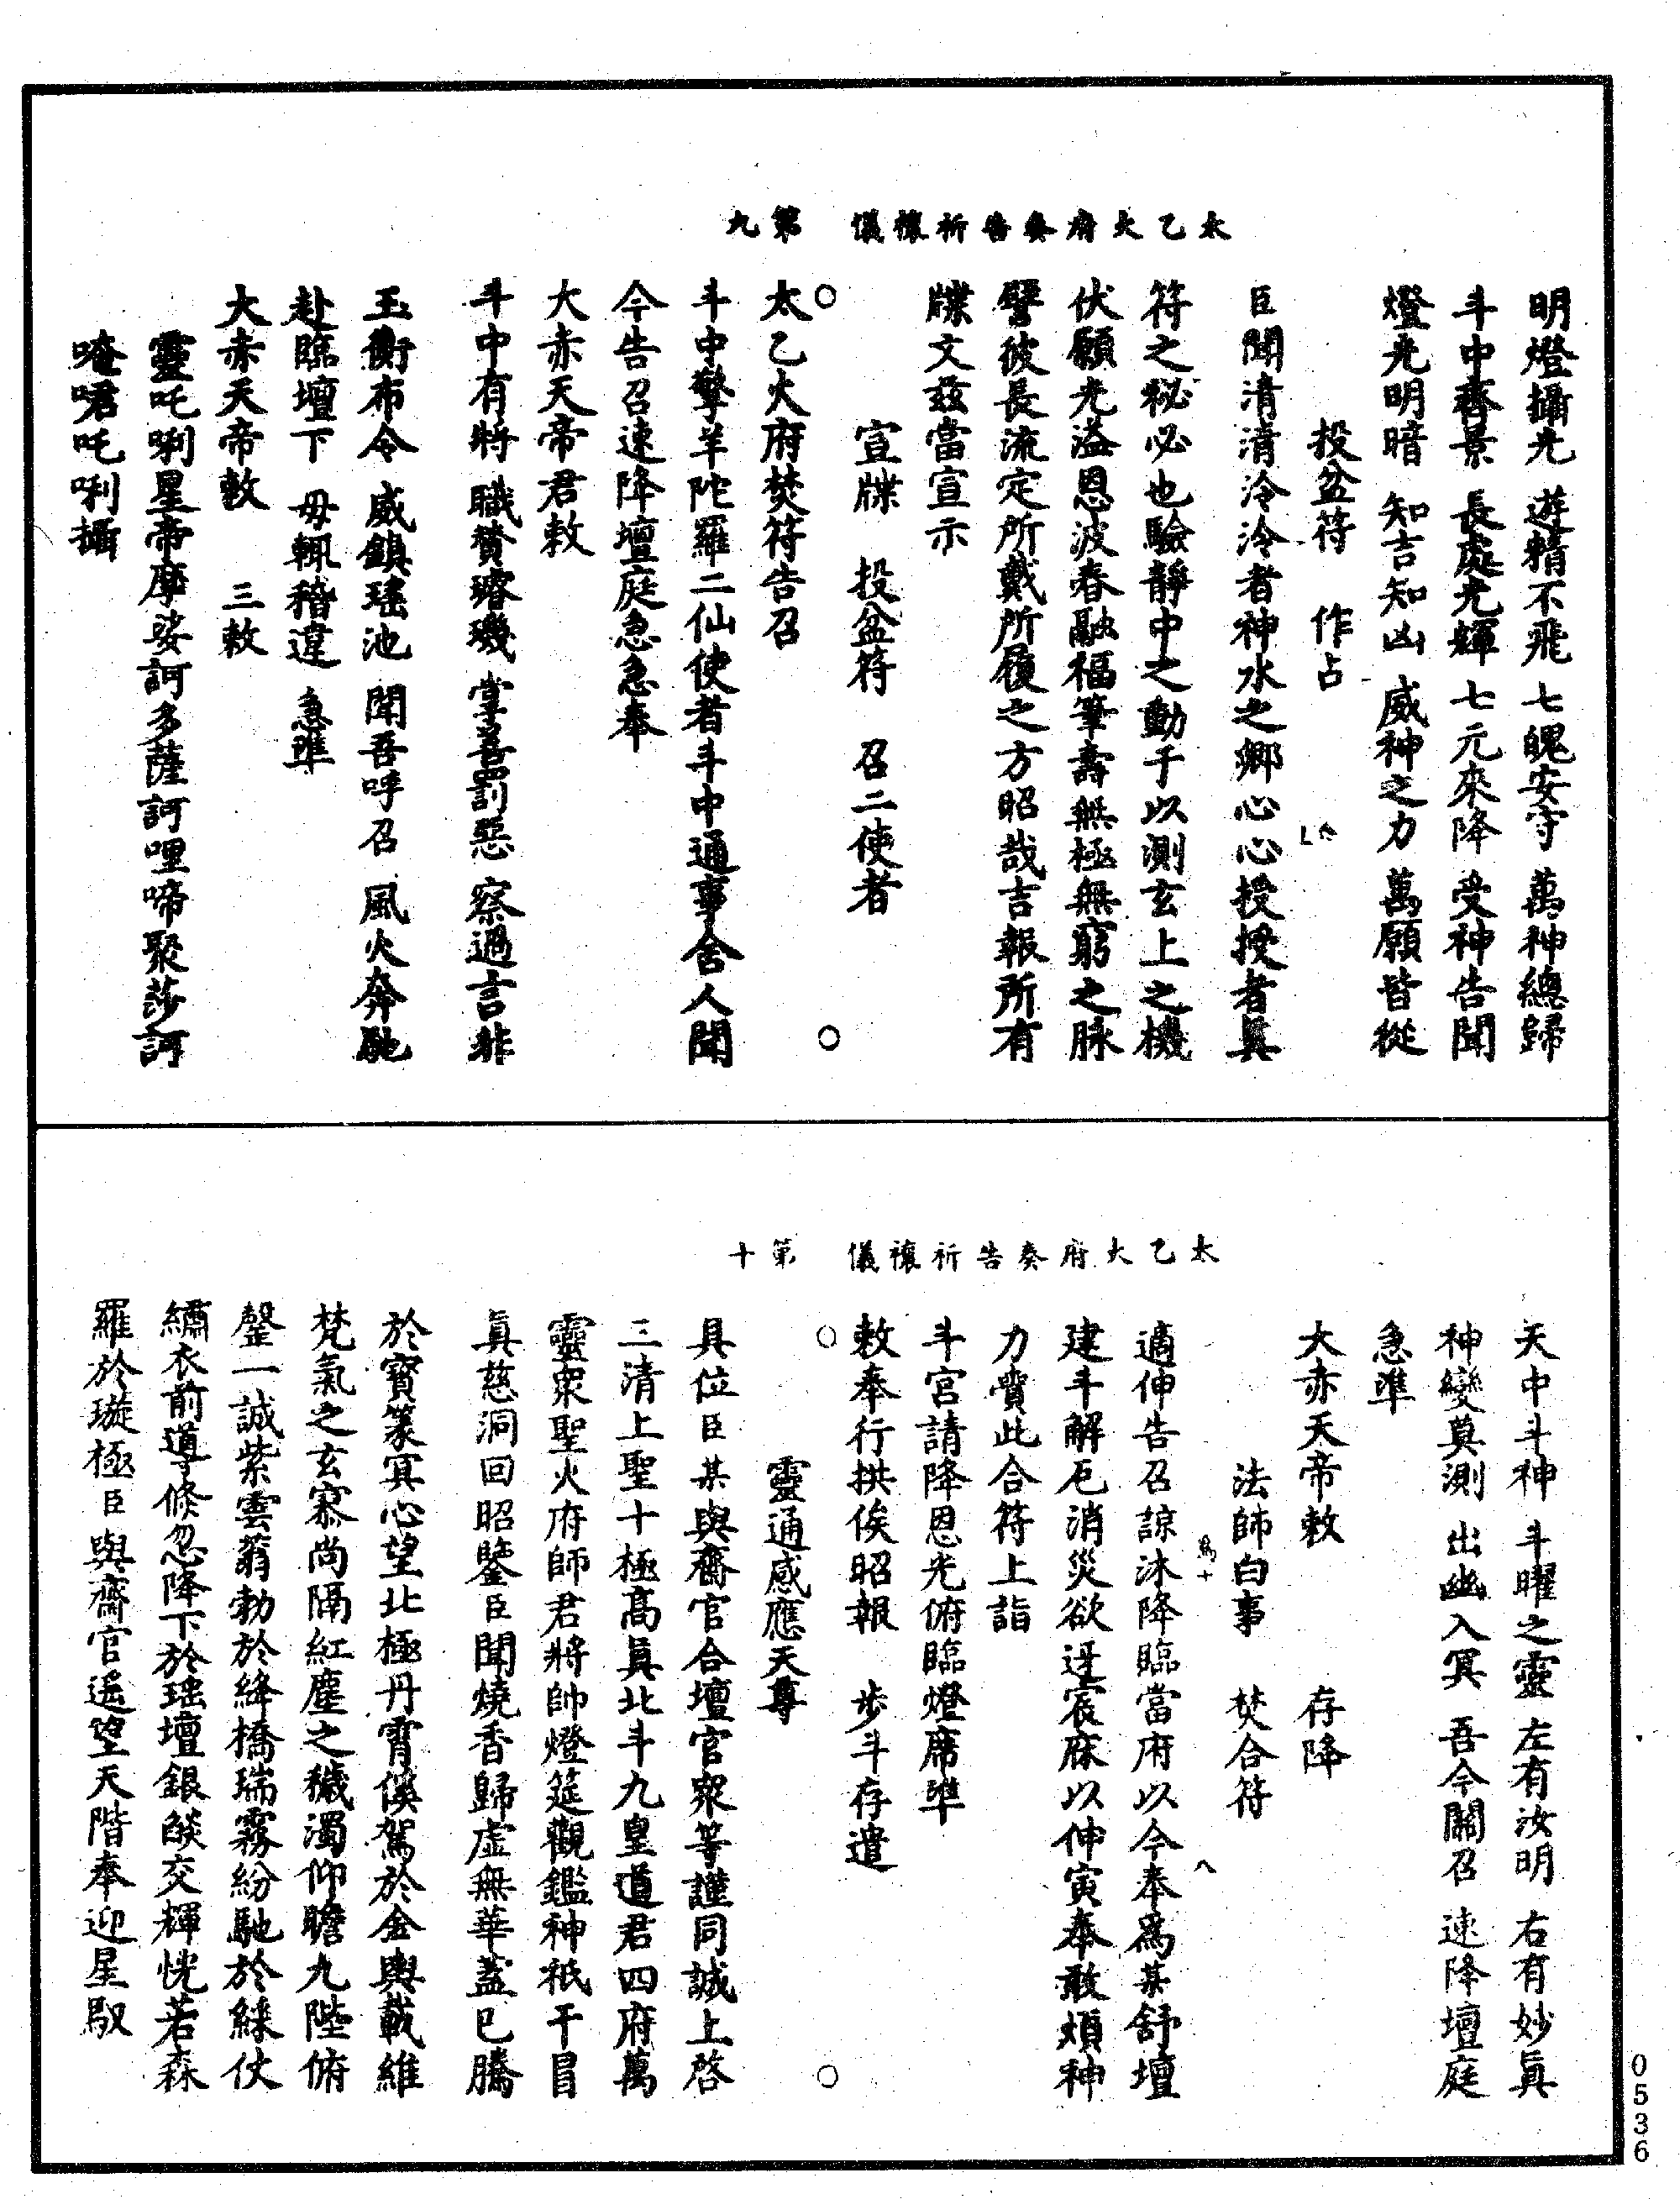 太乙火府奏告祈禳儀　第九
明燈攝光　遊精不飛　七魄安守　萬神總歸
斗中齊景　長處光輝　七元來降　受神告聞
燈光明暗　知吉知凶　威神之力　萬願皆從
投盆符　作占
臣聞清清泠泠者神水之鄉心心授授者眞
符之秘必也驗靜中之動于以測玄上之機
伏願光溢恩波春融福筆壽無極無窮之脉
譬彼長流定所戴所履之方昭哉吉報所有
牒文茲當宣示
宣牒　投盆符　召二使者
太乙火府焚符告召
斗中擎羊陀羅二仙使者斗中通事舍人聞
今告召速降壇庭急急奉
大赤天帝君敕
斗中有將　職贊璿璣　掌善罰惡　察過言非
玉衡布令　威鎮瑤池　聞吾呼召　風火奔馳
赴臨壇下　毋輒稽違　急準
大赤天帝敕　三敕
靈吒唎星帝摩娑訶多薩訶哩啼聚莎訶
唵㖶吒唎攝
太乙火府奏告祈禳儀　第十
天中斗神　斗曜之靈　左有汝明　右有妙眞
神變莫測　出幽入冥　吾今關召　速降壇庭
急準
大赤天帝敕　存降
法師白事　焚合符
適伸告召諒沐降臨當府以今奉爲某舒壇
建斗解厄消災欲迓宸庥以伸寅奉敢煩神
力賫此合符上詣
斗宮請降恩光俯臨燈席準
敕奉行拱俟昭報　步斗存遣
靈通感應天尊
具位臣某與齋官合壇官衆等謹同誠上啓
三清上聖十極高眞北斗九皇道君四府萬
靈衆聖火府師君將帥燈筵觀鑑神祇干冒
眞慈洞回昭鑒臣聞燒香歸虛無華蓋已騰
於寶篆冥心望北極丹霄傒駕於金輿載維
梵氣之玄寥尚隔紅塵之穢濁仰瞻九陛俯
罄一誠紫雲蓊勃於絳橋瑞霧紛馳於綵仗
繡衣前導倏忽降下於瑤壇銀燄交輝恍若森
羅於璇極臣與齋官遙望天階奉迎星馭
0536